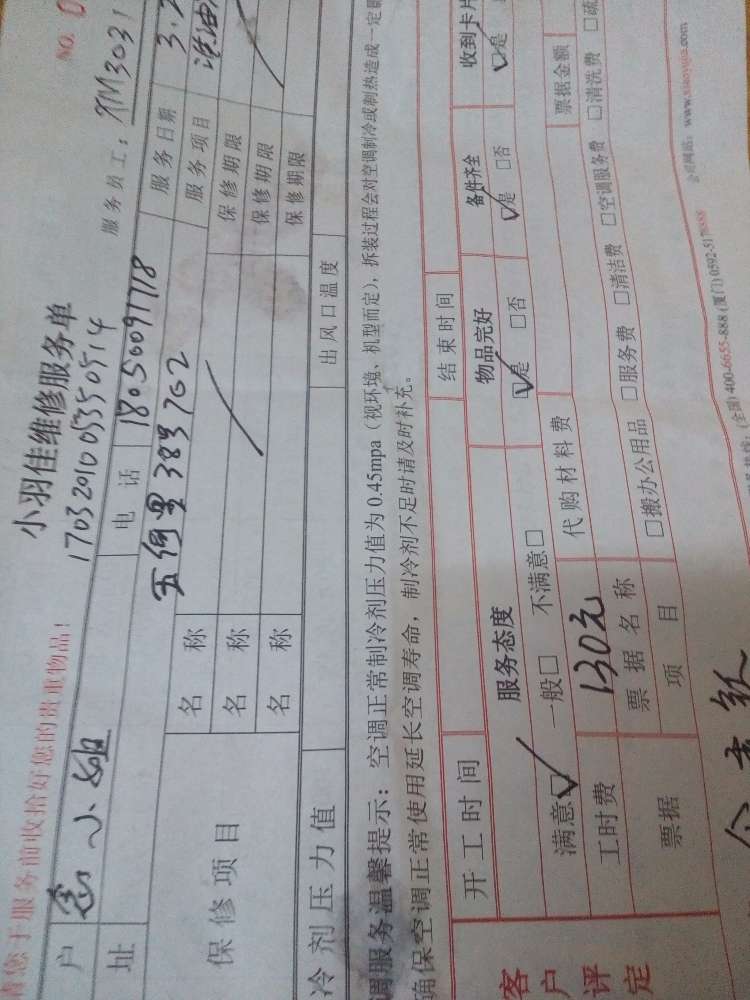 请您于服务前收拾好您的贵重物品!
NO. 0
小羽佳维修服务单
1703201005350514
服务员工: XM3031
户 小姐
电话 18050091718
服务日期 3.2
址 五缘里383702
服务项目 洗油
名称 保修期限
保修项目 名称 保修期限
名称 保修期限
冷剂压力值 出风口温度
调服务温馨提示: 空调正常制冷剂压力值为 0.45mpa (视环境、机型而定), 拆装过程会对空调制冷或制热造成一定
确保空调正常使用延长空调寿命, 制冷剂不足时请及时补充。
开工时间 结束时间
客户评定
服务态度 物品完好 备件齐全 收到卡片
满意☑ 一般□ 不满意□ ☑是 □否 ☑是 □否 ☑是
工时费 130元 代购材料费 票据金额
票据 票据名称
项目 □搬办公用品 □服务费 □清洁费 □空调服务费 □清洗费 □疏
(全国) 400-6655-888 (厦门) 0592-5178888 公司网站: www.xiaoyujia.com